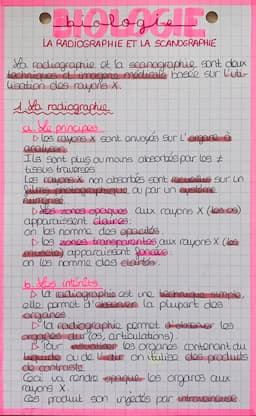 BIOLOGIE
biologie
LA RADIOGRAPHIE ET LA SCANOGRAPHIE
La radiographie et la scanographie sont deux
techniques d'imagerie médicale basée sur l'uti-
lisation des rayons X.
1. La radiographie
a. Le principe
▷ Les rayons X sont envoyés sur l'organe à
analyser.
Ils sont plus ou moins absorbés par les ≠
tissus traversés
Les rayons X non absorbés sont recueillis sur un
film photographique ou par un système
numérisé.
▷ Les zones opaques aux rayons X (les os)
apparaissent claires.
on les nomme des opacités.
▷ Les zones transparentes aux rayons X (les
muscles) apparaissent foncées
on les nomme des clartés.
b. Les intérêts
▷ La radiographie est une technique simple,
elle permet d'observer la plupart des
organes
▷ La radiographie permet d'observer les
organes durs (os, articulations).
▷ Pour visualiser les organes contenant du
liquide ou de l'air on utilise des produits
de contraste.
Ceci va rendre opaque les organes aux
rayons X.
Ces produit son injectés par intraveineuse